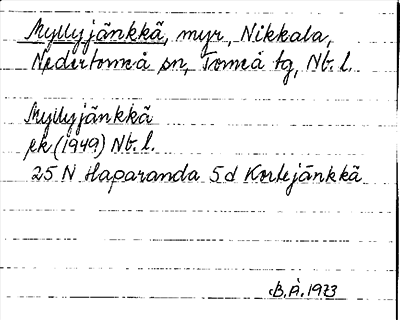 Myllyjänkkä, myr, Nikkala,
Nedertorneå sn, Torneå tg, Nb. l.
Myllyjänkkä
ek (1949) Nb. l.
25 N Haparanda 5d Kortejänkkä
B.Å. 1973